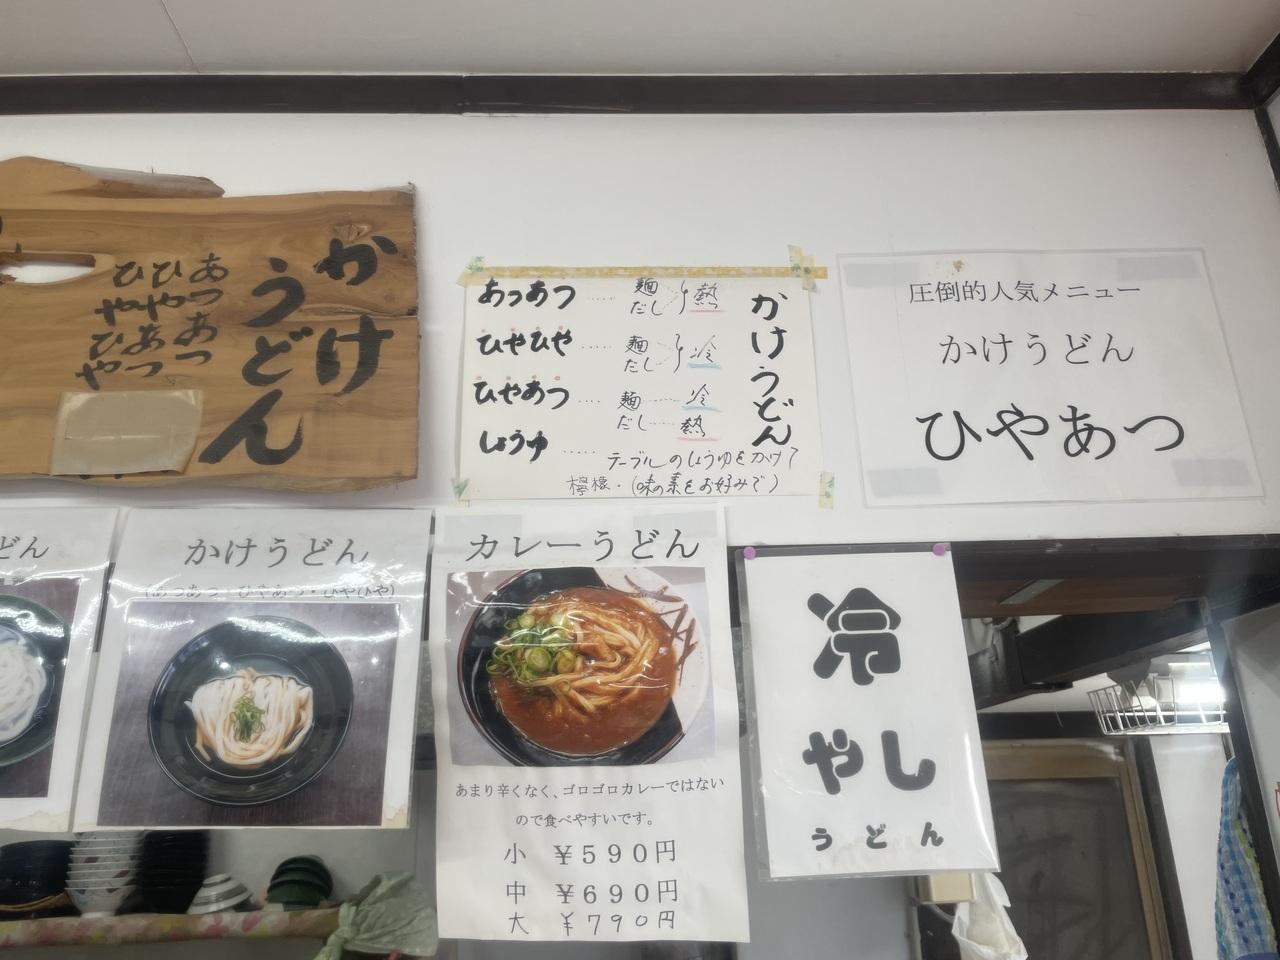 かけ
うどん
あつあつ
ひやあつ
ひやひや
あつあつ……麺 だし 熱
ひやひや……麺 だし 冷
ひやあつ……麺……冷
だし……熱
しょうゆ……テーブルのしょうゆをかけて
檸檬・(味の素をお好みで)
かけうどん
圧倒的人気メニュー
かけうどん
ひやあつ
どん
かけうどん
(あつあつ・ひやあつ・ひやひや)
カレーうどん
あまり辛くなく、ゴロゴロカレーではない
ので食べやすいです。
小 ¥590円
中 ¥690円
大 ¥790円
冷
やし
うどん